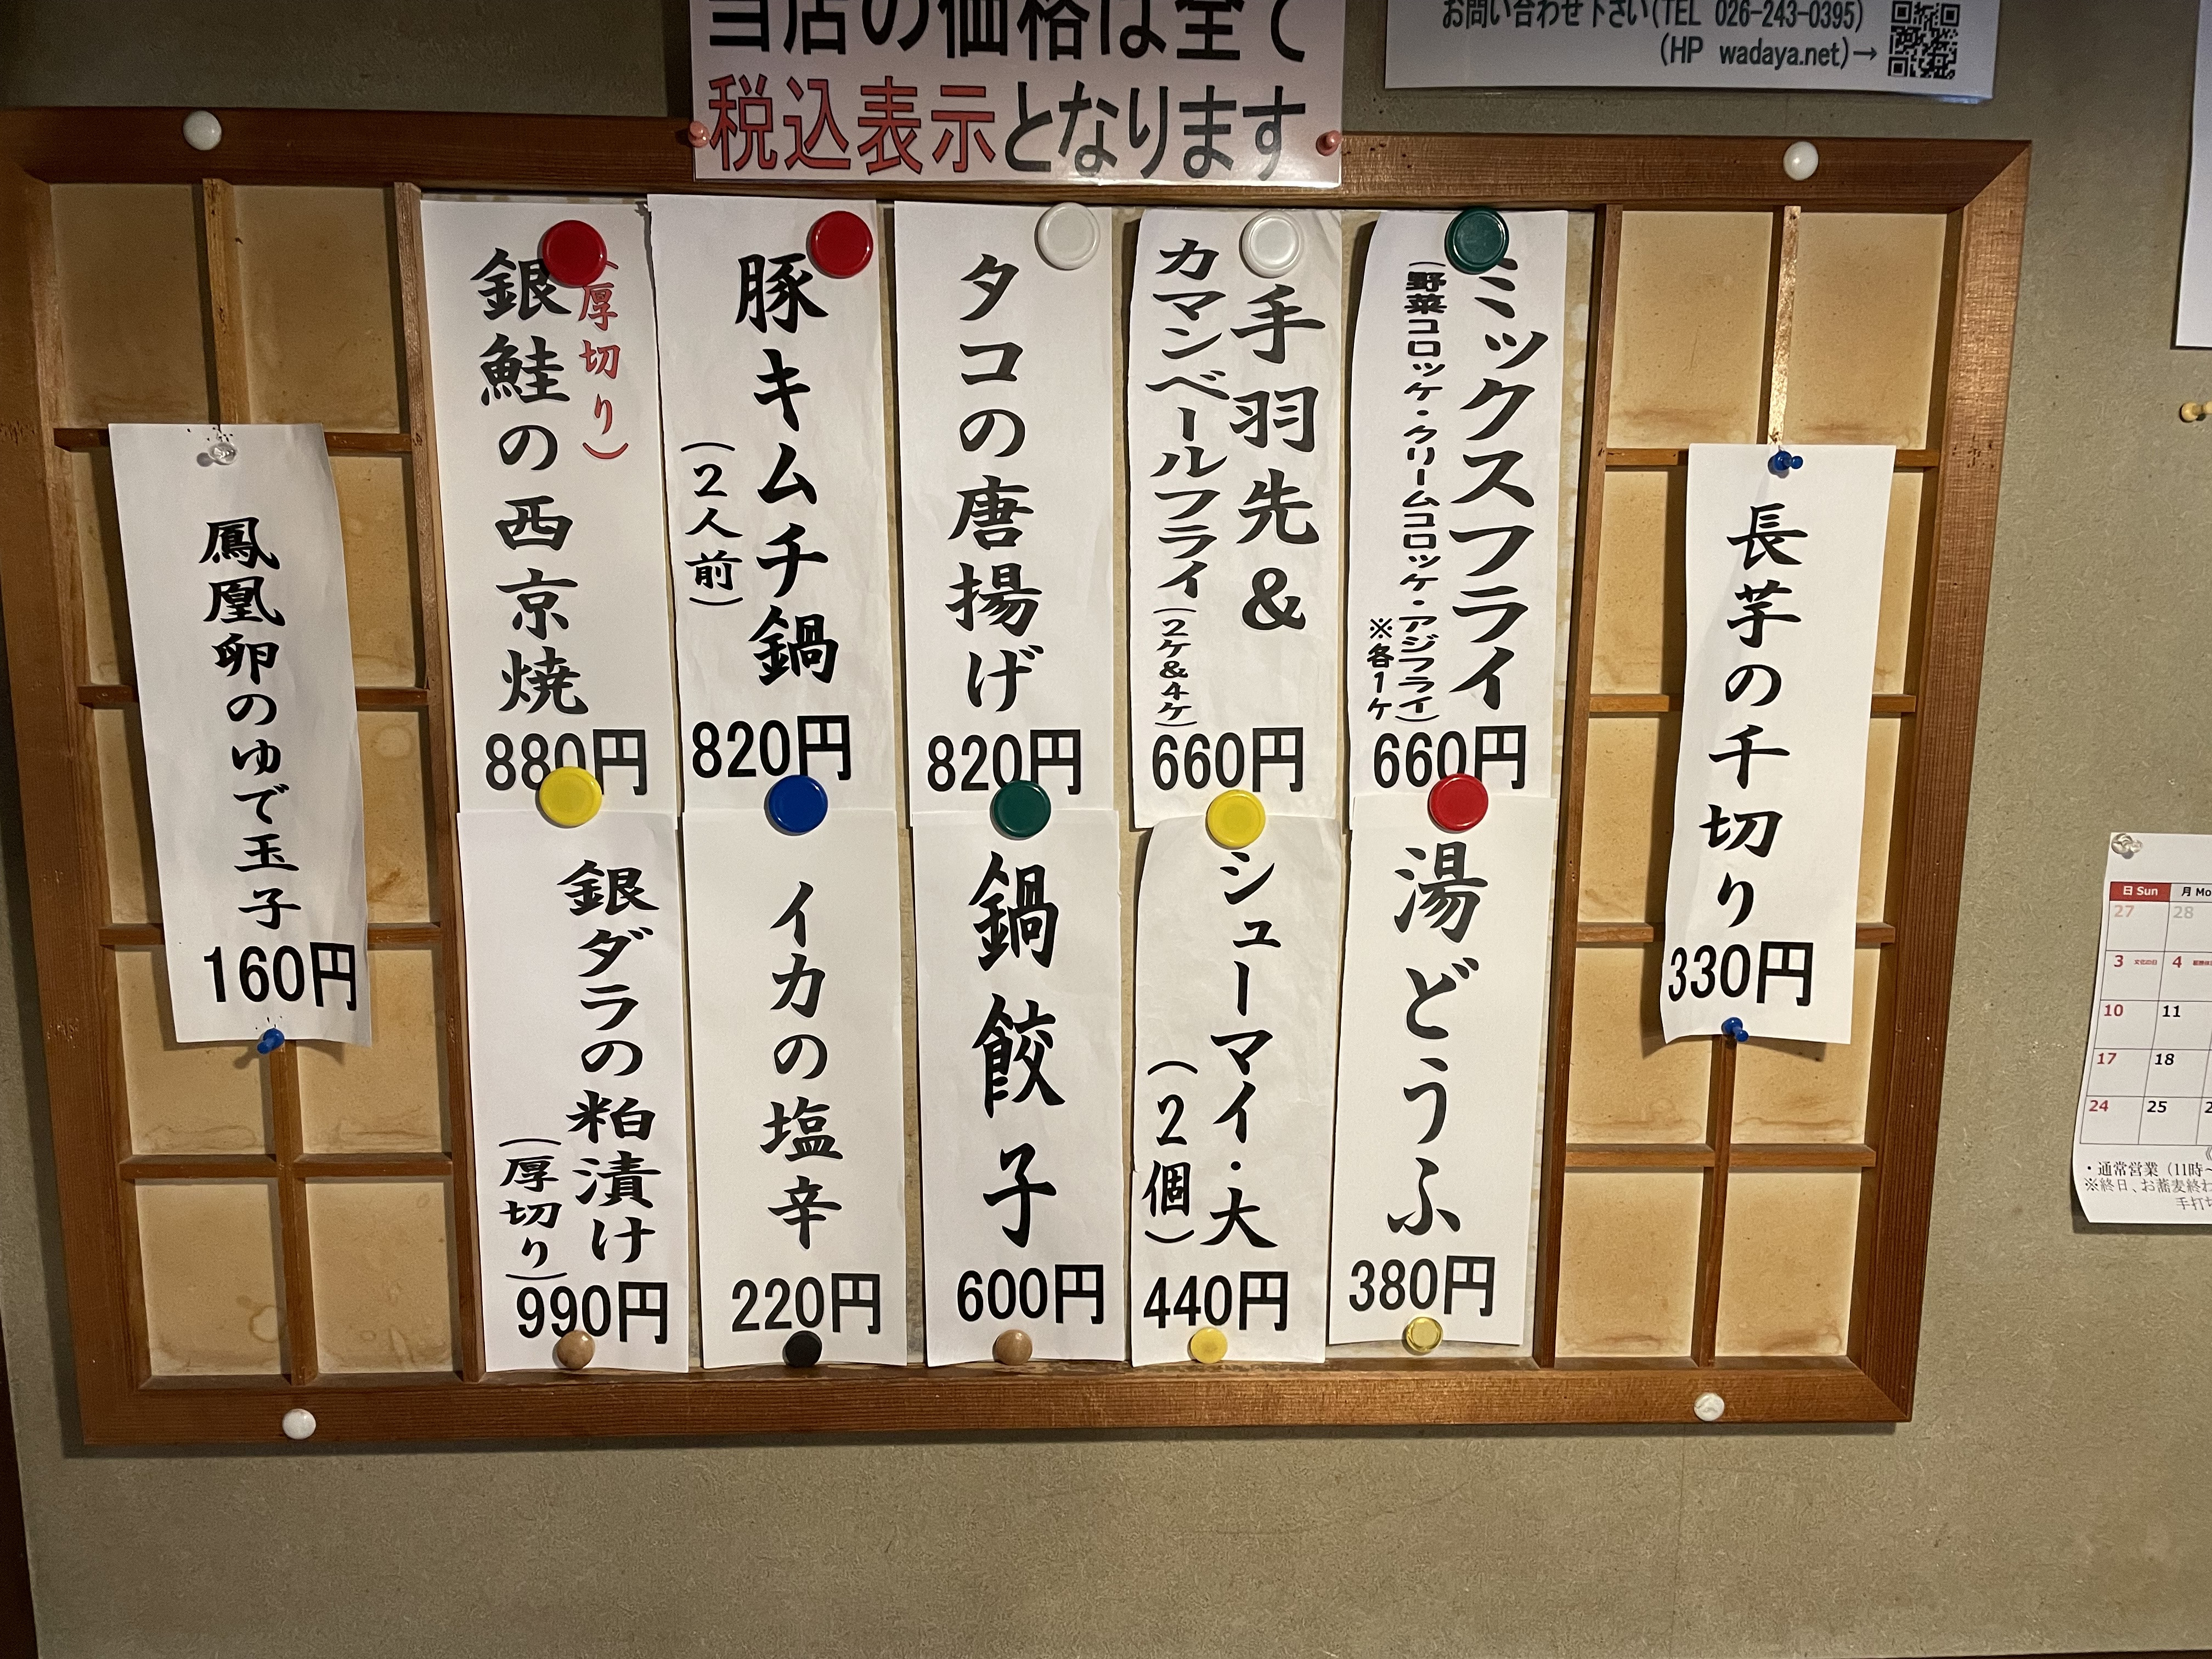 当店の価格は全て
税込表示となります
お問い合わせ下さい(TEL 026-243-0395)
(HP wadaya.net)→
長芋の千切り
330円
ミックスフライ
(野菜コロッケ・クリームコロッケ・アジフライ)
※各1ケ
660円
手羽先&
カマンベールフライ(2ケ&4ケ)
660円
タコの唐揚げ
820円
豚キムチ鍋
(2人前)
820円
(厚切り)
銀鮭の西京焼
880円
湯どうふ
380円
シューマイ・大
(2個)
440円
鍋餃子
600円
イカの塩辛
220円
銀ダラの粕漬け
(厚切り)
990円
鳳凰卵のゆで玉子
160円
日 Sun 月 Mo
27 28
3 文化の日 4
10 11
17 18
24 25
・通常営業(11時~
※終日、お蕎麦終わ
手打ち